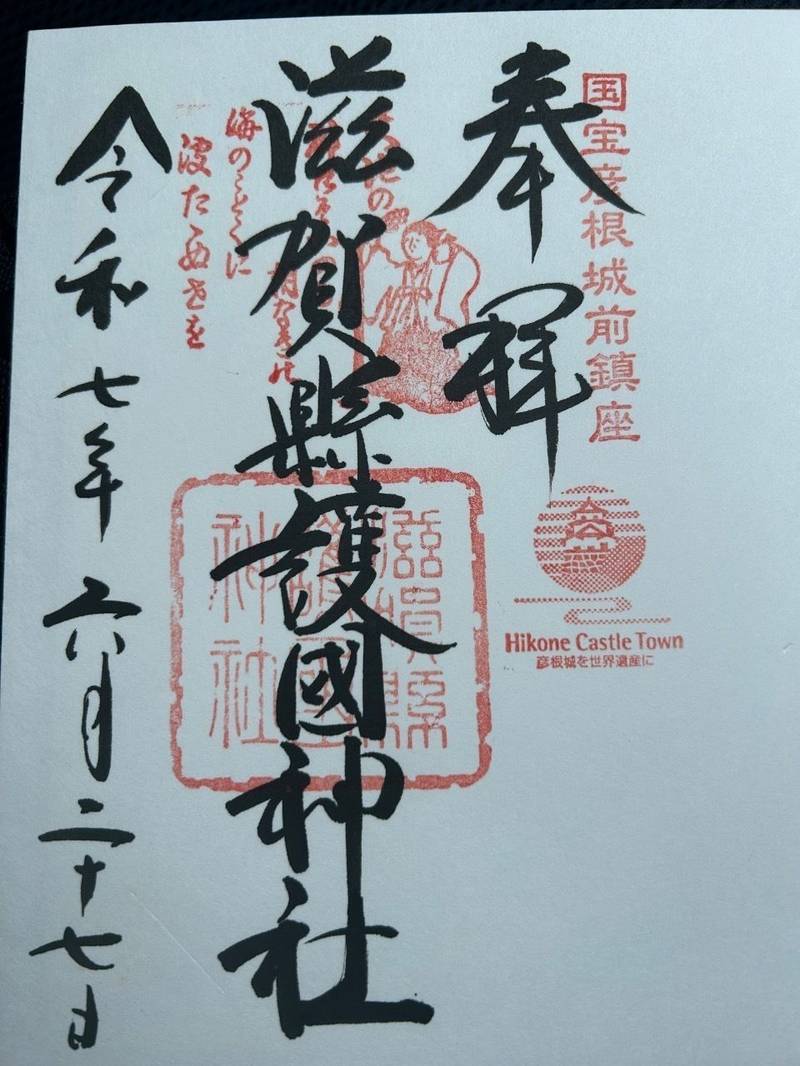 国宝彦根城前鎮座
奉拝
Hikone Castle Town
彦根城を世界遺産に
滋賀縣護國神社
滋賀縣
護國
神社
海のことくに
波たゝぬせを
令和七年六月二十七日